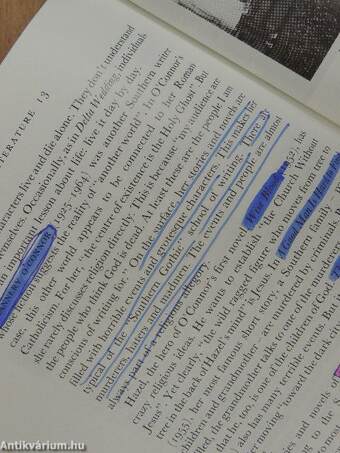 LITERATURE 13
characters live and life alone. They don't understand
themselves. Occasionally, as in Delta Wedding, individuals
lesson about life: live it day by day.
O'CONNOR (1925–1964) was another Southern writer
whose suggest the reality of "another world". In O'Connor's
case, this other world appears to be connected to her Roman
Catholicism. For her, "the centre of existence is the Holy Ghost." But
she rarely discusses religion directly. This is because "my audience are
the people who think God is dead. At least these are the people I am
conscious of writing for." On the surface, her stories and novels are
filled with horrible events and grotesque characters. This makes her
typical of the "Southern Gothic" school of writing. There are
murderers, haters and madmen. The events and people are almost
always part of a religious allegory.
Hazel, the hero of O'Connor's first novel, Wise Blood
crazy religious ideas. He wants to establish "the Church Without
Jesus". Yet clearly, "the wild ragged figure who moves from tree to
tree in the back of Hazel's mind" is Jesus. In A Good Man Is Hard to Find
(1955), her most famous short story, a Southern family
children and grandmother – are murdered by criminals.
killed, the grandmother talks to one of the murderers
that he, too, is one of the children of God.
also has many terrible events. But
moving "toward the dark city
stories and novels of
Antikvárium.hu